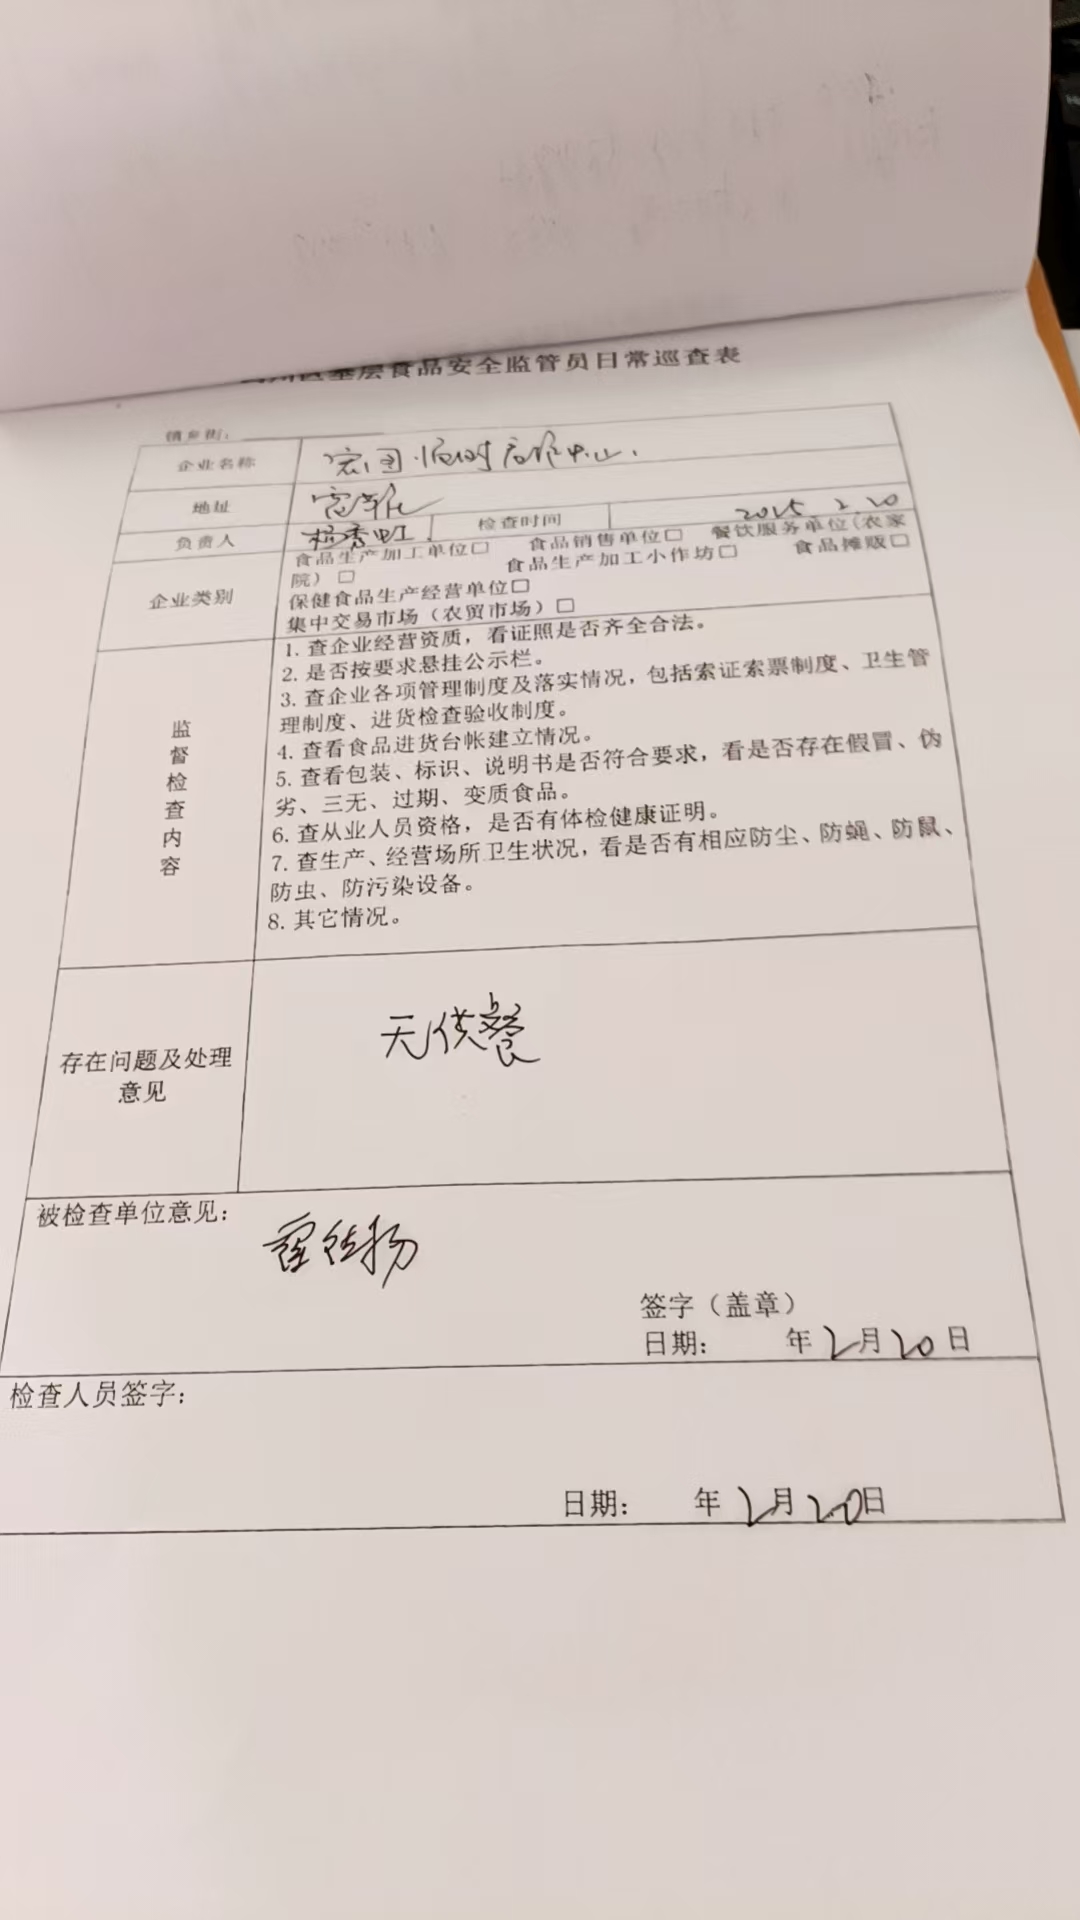 基层食品安全监管员日常巡查表
镇乡街：
企业名称
地址
负责人 检查时间 2025 2.20
企业类别
食品生产加工单位□ 食品销售单位□ 餐饮服务单位（农家
院）□ 食品生产加工小作坊□ 食品摊贩□
保健食品生产经营单位□
集中交易市场（农贸市场）□
监督检查内容
1. 查企业经营资质，看证照是否齐全合法。
2. 是否按要求悬挂公示栏。
3. 查企业各项管理制度及落实情况，包括索证索票制度、卫生管
理制度、进货检查验收制度。
4. 查看食品进货台帐建立情况。
5. 查看包装、标识、说明书是否符合要求，看是否存在假冒、伪
劣、三无、过期、变质食品。
6. 查从业人员资格，是否有体检健康证明。
7. 查生产、经营场所卫生状况，看是否有相应防尘、防蝇、防鼠、
防虫、防污染设备。
8. 其它情况。
存在问题及处理
意见
无供餐
被检查单位意见：
签字（盖章）
日期： 年2月20日
检查人员签字：
日期： 年2月20日